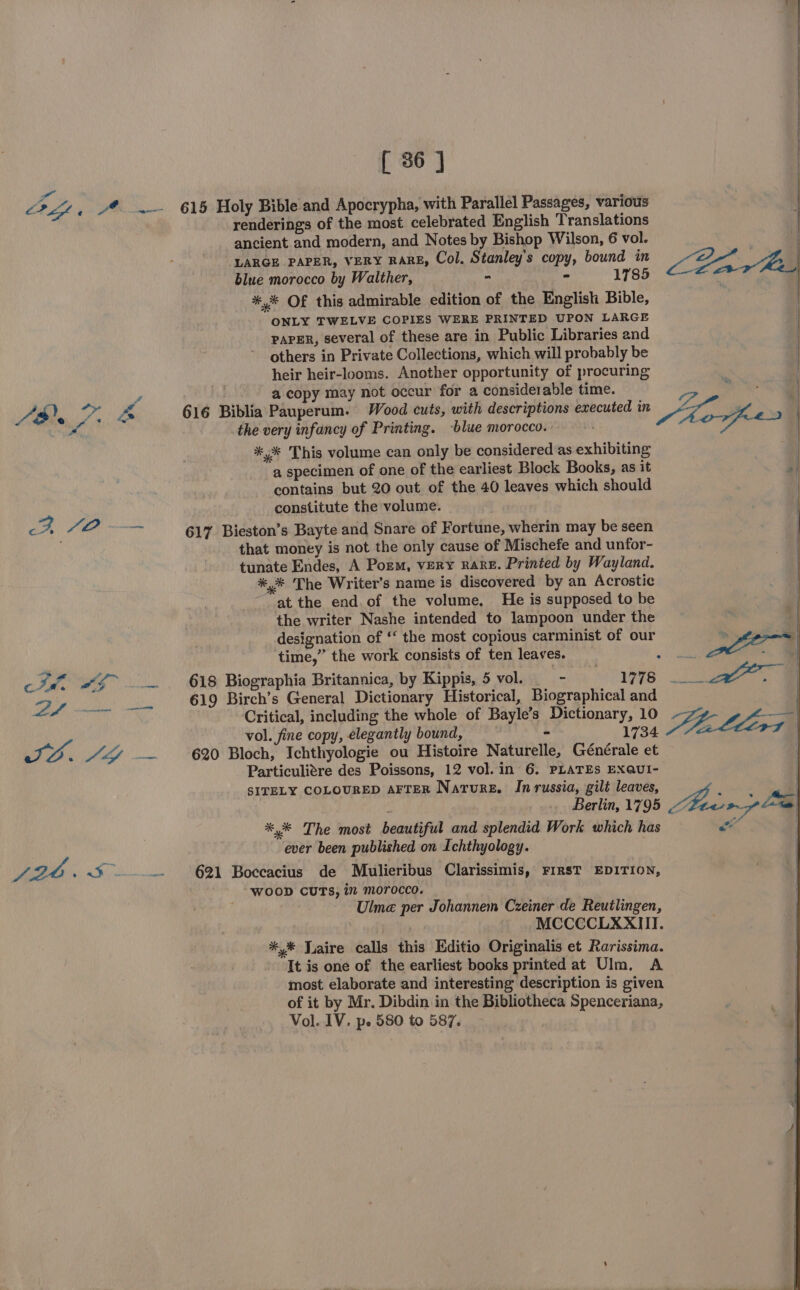 [ 36 ]
615 Holy Bible and Apocrypha, with Parallel Passages, various
renderings of the most celebrated English Translations
ancient and modern, and Notes by Bishop Wilson, 6 vol.
LARGE PAPER, VERY RARE, Col. Stanley's copy, bound in
blue morocco by Walther, - - 1785
*⁎* Of this admirable edition of the English Bible,
ONLY TWELVE COPIES WERE PRINTED UPON LARGE
PAPER, several of these are in Public Libraries and
others in Private Collections, which will probably be
heir heir-looms. Another opportunity of procuring
a copy may not occur for a considerable time.
616 Biblia Pauperum. Wood cuts, with descriptions executed in
the very infancy of Printing. blue morocco.
*⁎* This volume can only be considered as exhibiting
a specimen of one of the earliest Block Books, as it
contains but 20 out of the 40 leaves which should
constitute the volume.
3. 10 —
617 Bieston's Bayte and Snare of Fortune, wherin may be seen
that money is not the only cause of Mischefe and unfor-
tunate Endes, A POEM, VERY RARE. Printed by Wayland.
*⁎* The Writer's name is discovered by an Acrostic
at the end of the volume. He is supposed to be
the writer Nashe intended to lampoon under the
designation of “ the most copious carminist of our
time,” the work consists of ten leaves.
618 Biographia Britannica, by Kippis, 5 vol. - 1778
21 — —
619 Birch's General Dictionary Historical, Biographical and
Critical, including the whole of Bayle's Dictionary, 10
vol. fine copy, elegantly bound, - 1734
620 Bloch, Ichthyologie ou Histoire Naturelle, Générale et
Particulière des Poissons, 12 vol. in 6. PLATES EXQUI-
SITELY COLOURED AFTER NATURE. In russia, gilt leaves,
Berlin, 1795
*⁎* The most beautiful and splendid Work which has
ever been published on Ichthyology.
126. 5 —
621 Boccacius de Mulieribus Clarissimis, FIRST EDITION,
WOOD CUTS, in morocco.
Ulmæ per Johannem Czeiner de Reutlingen,
MCCCCLXXIII.
*⁎* Laire calls this Editio Originalis et Rarissima.
It is one of the earliest books printed at Ulm. A
most elaborate and interesting description is given
of it by Mr. Dibdin in the Bibliotheca Spenceriana,
Vol. IV. p. 580 to 587.